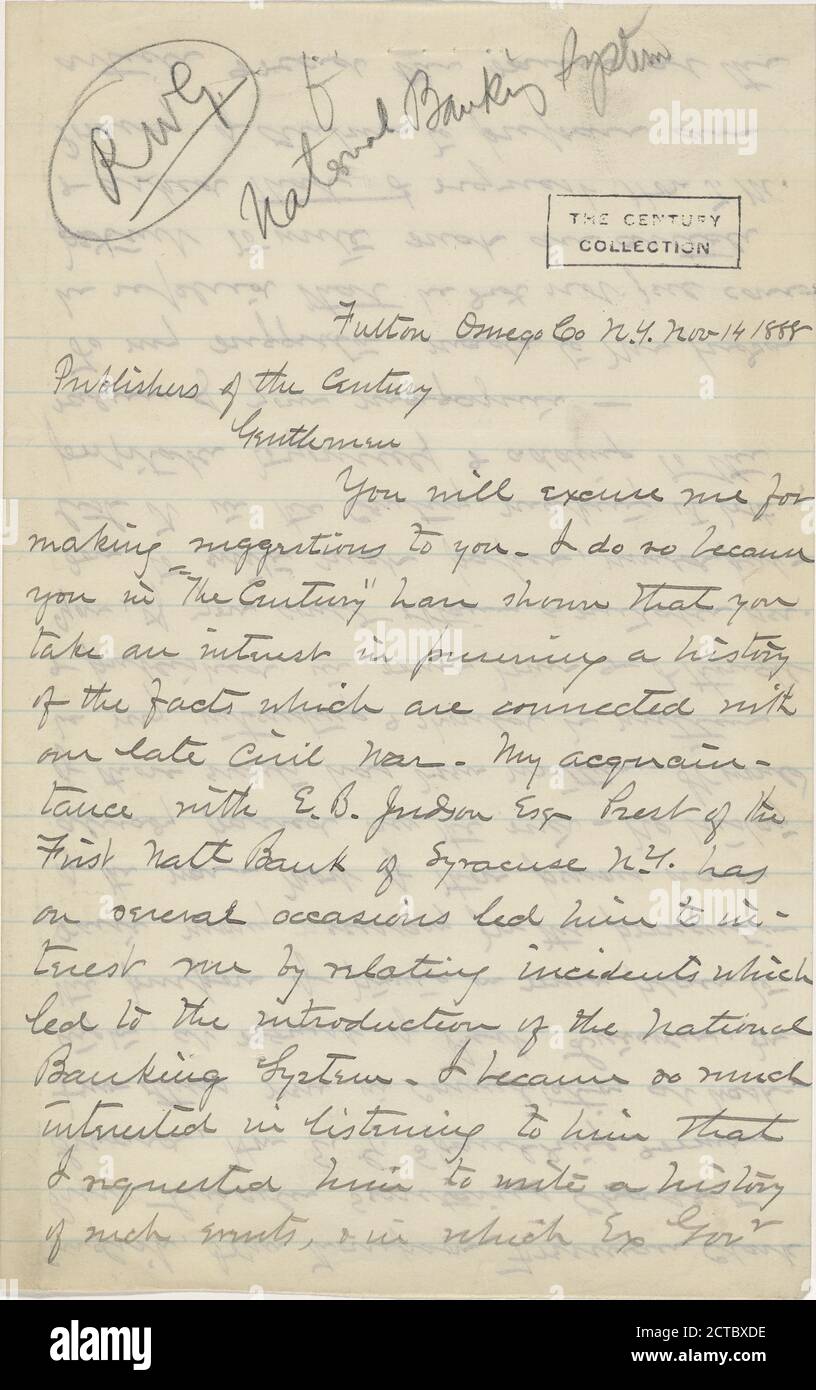 RWG
f
National Banking System
THE CENTURY
COLLECTION
Fulton Oswego Co N.Y. Nov 14 1888
Publishers of the Century
Gentlemen
You will excuse me for
making suggestions to you - I do so because
you in "The Century" have shown that you
take an interest in preserving a history
of the facts which are connected with
our late Civil War - My acquain-
tance with E. B. Judson Esq Prest of the
First Natl Bank of Syracuse N.Y. has
on several occasions led him to in-
terest me by relating incidents which
led to the introduction of the National
Banking System - I became so much
interested in listening to him that
I requested him to write a history
of such events, & in which Ex Govr
alamy
alamy
Image ID: 2CTBXDE
www.alamy.com